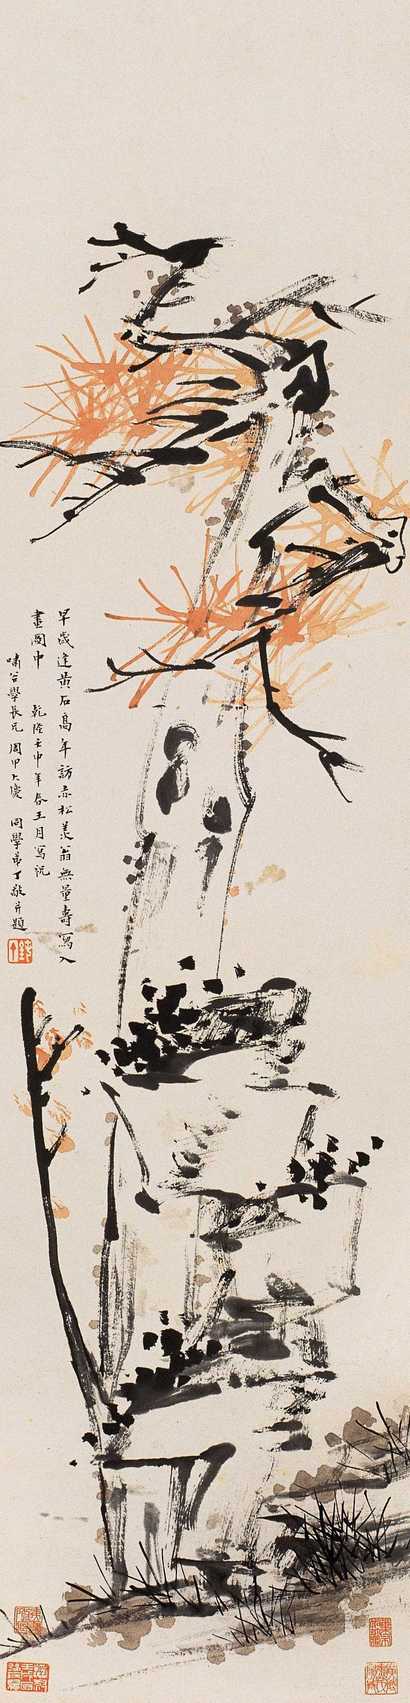 早歲逢黃石高年訪赤松羨翁無量壽寫入
畫圖中　乾隆壬申年春王月寫祝
嘯谷學長兄周甲大慶　同學弟丁敬并題